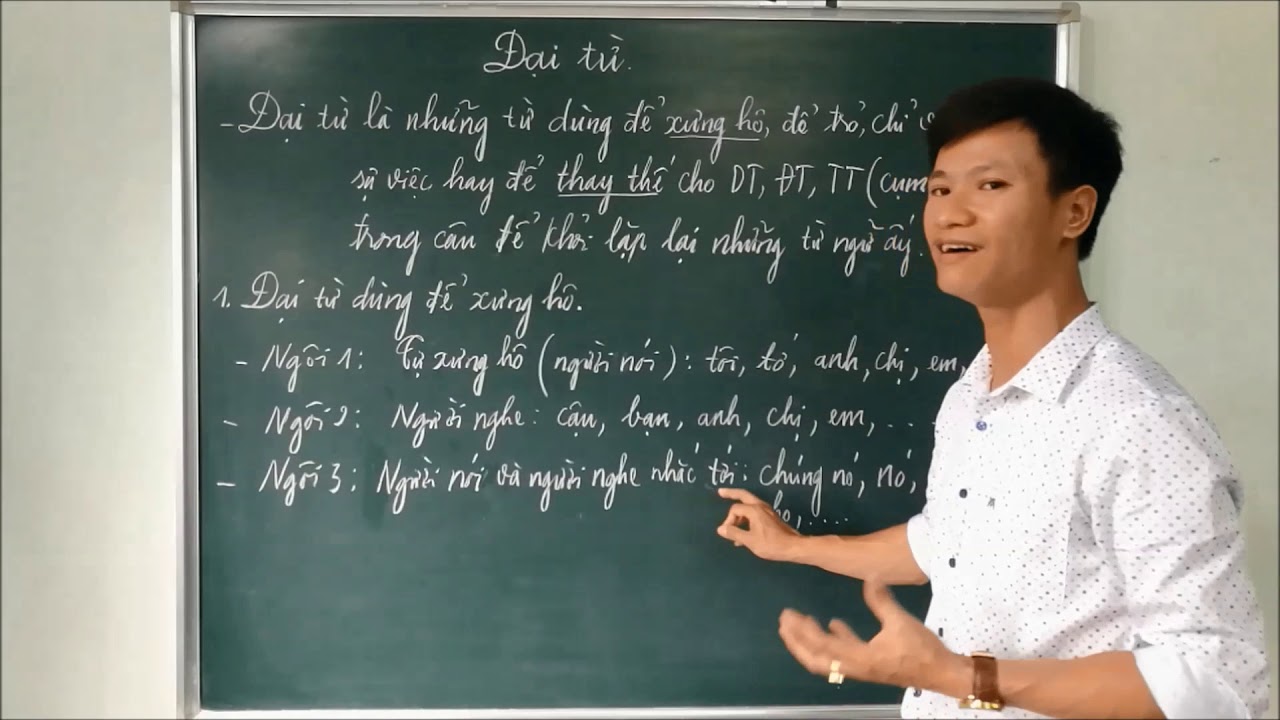 Đại từ.
- Đại từ là những từ dùng để xưng hô, để trỏ, chỉ
sự việc hay để thay thế cho DT, ĐT, TT (cụm
trong câu để khỏi lặp lại những từ ngữ ấy.
1. Đại từ dùng để xưng hô.
- Ngôi 1: Tự xưng hô (người nói): tôi, tớ, anh, chị, em,
- Ngôi 2: Người nghe: cậu, bạn, anh, chị, em, ...
- Ngôi 3: Người nói và người nghe nhắc tới: chúng nó, nó,
họ, ....